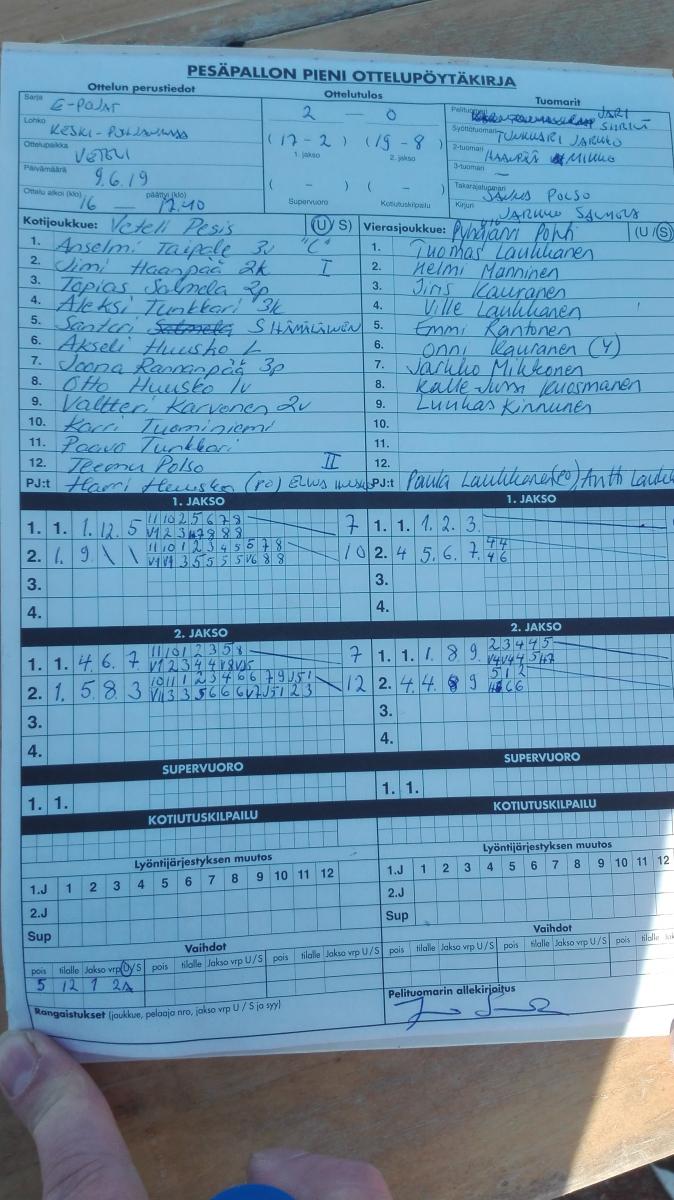 PESÄPALLON PIENI OTTELUPÖYTÄKIRJA
Ottelun perustiedot
Sarja E-POJAT
Lohko KESKI-POHJANMAA
Ottelupaikka VETELI
Päivämäärä 9.6.19
Ottelu alkoi (klo) päättyi (klo)
16 — 17.40
Ottelutulos
2 — 0
(17 - 2) (19 - 8)
1. jakso 2. jakso
( - ) ( - )
Supervuoro Kotiutuskilpailu
Tuomarit
Pelituomari JARI
Syöttötuomari TUNKKARI JARKKO
2-tuomari HAANPÄÄ MIKKO
3-tuomari —
Takarajatuomari POLSO
Kirjuri JARKKO SALMELA
Kotijoukkue: Veteli Pesis (U/S)
1. Anselmi Taipale 3v "C"
2. Jimi Haanpää 2k I
3. Topias Salmela 2p
4. Aleksi Tunkkari 3k
5. Santeri Salmela S HÄMÄLÄINEN
6. Akseli Huusko L
7. Joona Rannanpää 3p
8. Otto Huusko 1v
9. Valtteri Karvonen 2v
10. Karri Tuominiemi
11. Paavo Tunkkari
12. Teemu Polso II
PJ:t Harri Huusko (PO)
Vierasjoukkue: Pyhäjärvi Pohti (U/S)
1. Tuomas Laukkanen
2. Helmi Manninen
3. Jiris Kauranen
4. Ville Laukkanen
5. Emmi Kantonen
6. Onni Kauranen (Y)
7. Jarkko Mikkonen
8. Kalle-Jussi Kuosmanen
9. Luukas Kinnunen
10.
11.
12.
PJ:t Paula Laukkanen (PO), Antti
1. JAKSO
1. 1. 1. 12. 5 11 10 2 5 6 7 8 7
2. 1. 9 \ \ 11 10 1 2 3 4 5 6 7 8 10
3.
4.
1. JAKSO
1. 1. 1. 2. 3.
2. 4 5. 6. 7. 4 4
4 6
3.
4.
2. JAKSO
1. 1. 4. 6. 7 11 10 1 2 3 5 8 7
2. 1. 5. 8. 3 10 11 1 2 3 4 6 6 7 9 J5 1 12
3.
4.
2. JAKSO
1. 1. 1. 8. 9. 2 3 4 4 5
2. 4. 4. 9 5 1 2
3.
4.
SUPERVUORO
1. 1.
SUPERVUORO
1. 1.
KOTIUTUSKILPAILU
KOTIUTUSKILPAILU
Lyöntijärjestyksen muutos
1.J 1 2 3 4 5 6 7 8 9 10 11 12
2.J
Sup
Lyöntijärjestyksen muutos
1.J 1 2 3 4 5 6 7 8 9 10 11 12
2.J
Sup
Vaihdot
pois tilalle Jakso vrp U/S pois tilalle Jakso vrp U/S pois tilalle Jakso vrp U/S
5 12 1 2A
Vaihdot
pois tilalle Jakso vrp U/S pois tilalle Jakso vrp U/S pois tilalle
Rangaistukset (joukkue, pelaaja nro, jakso vrp U / S ja syy)
Pelituomarin allekirjoitus